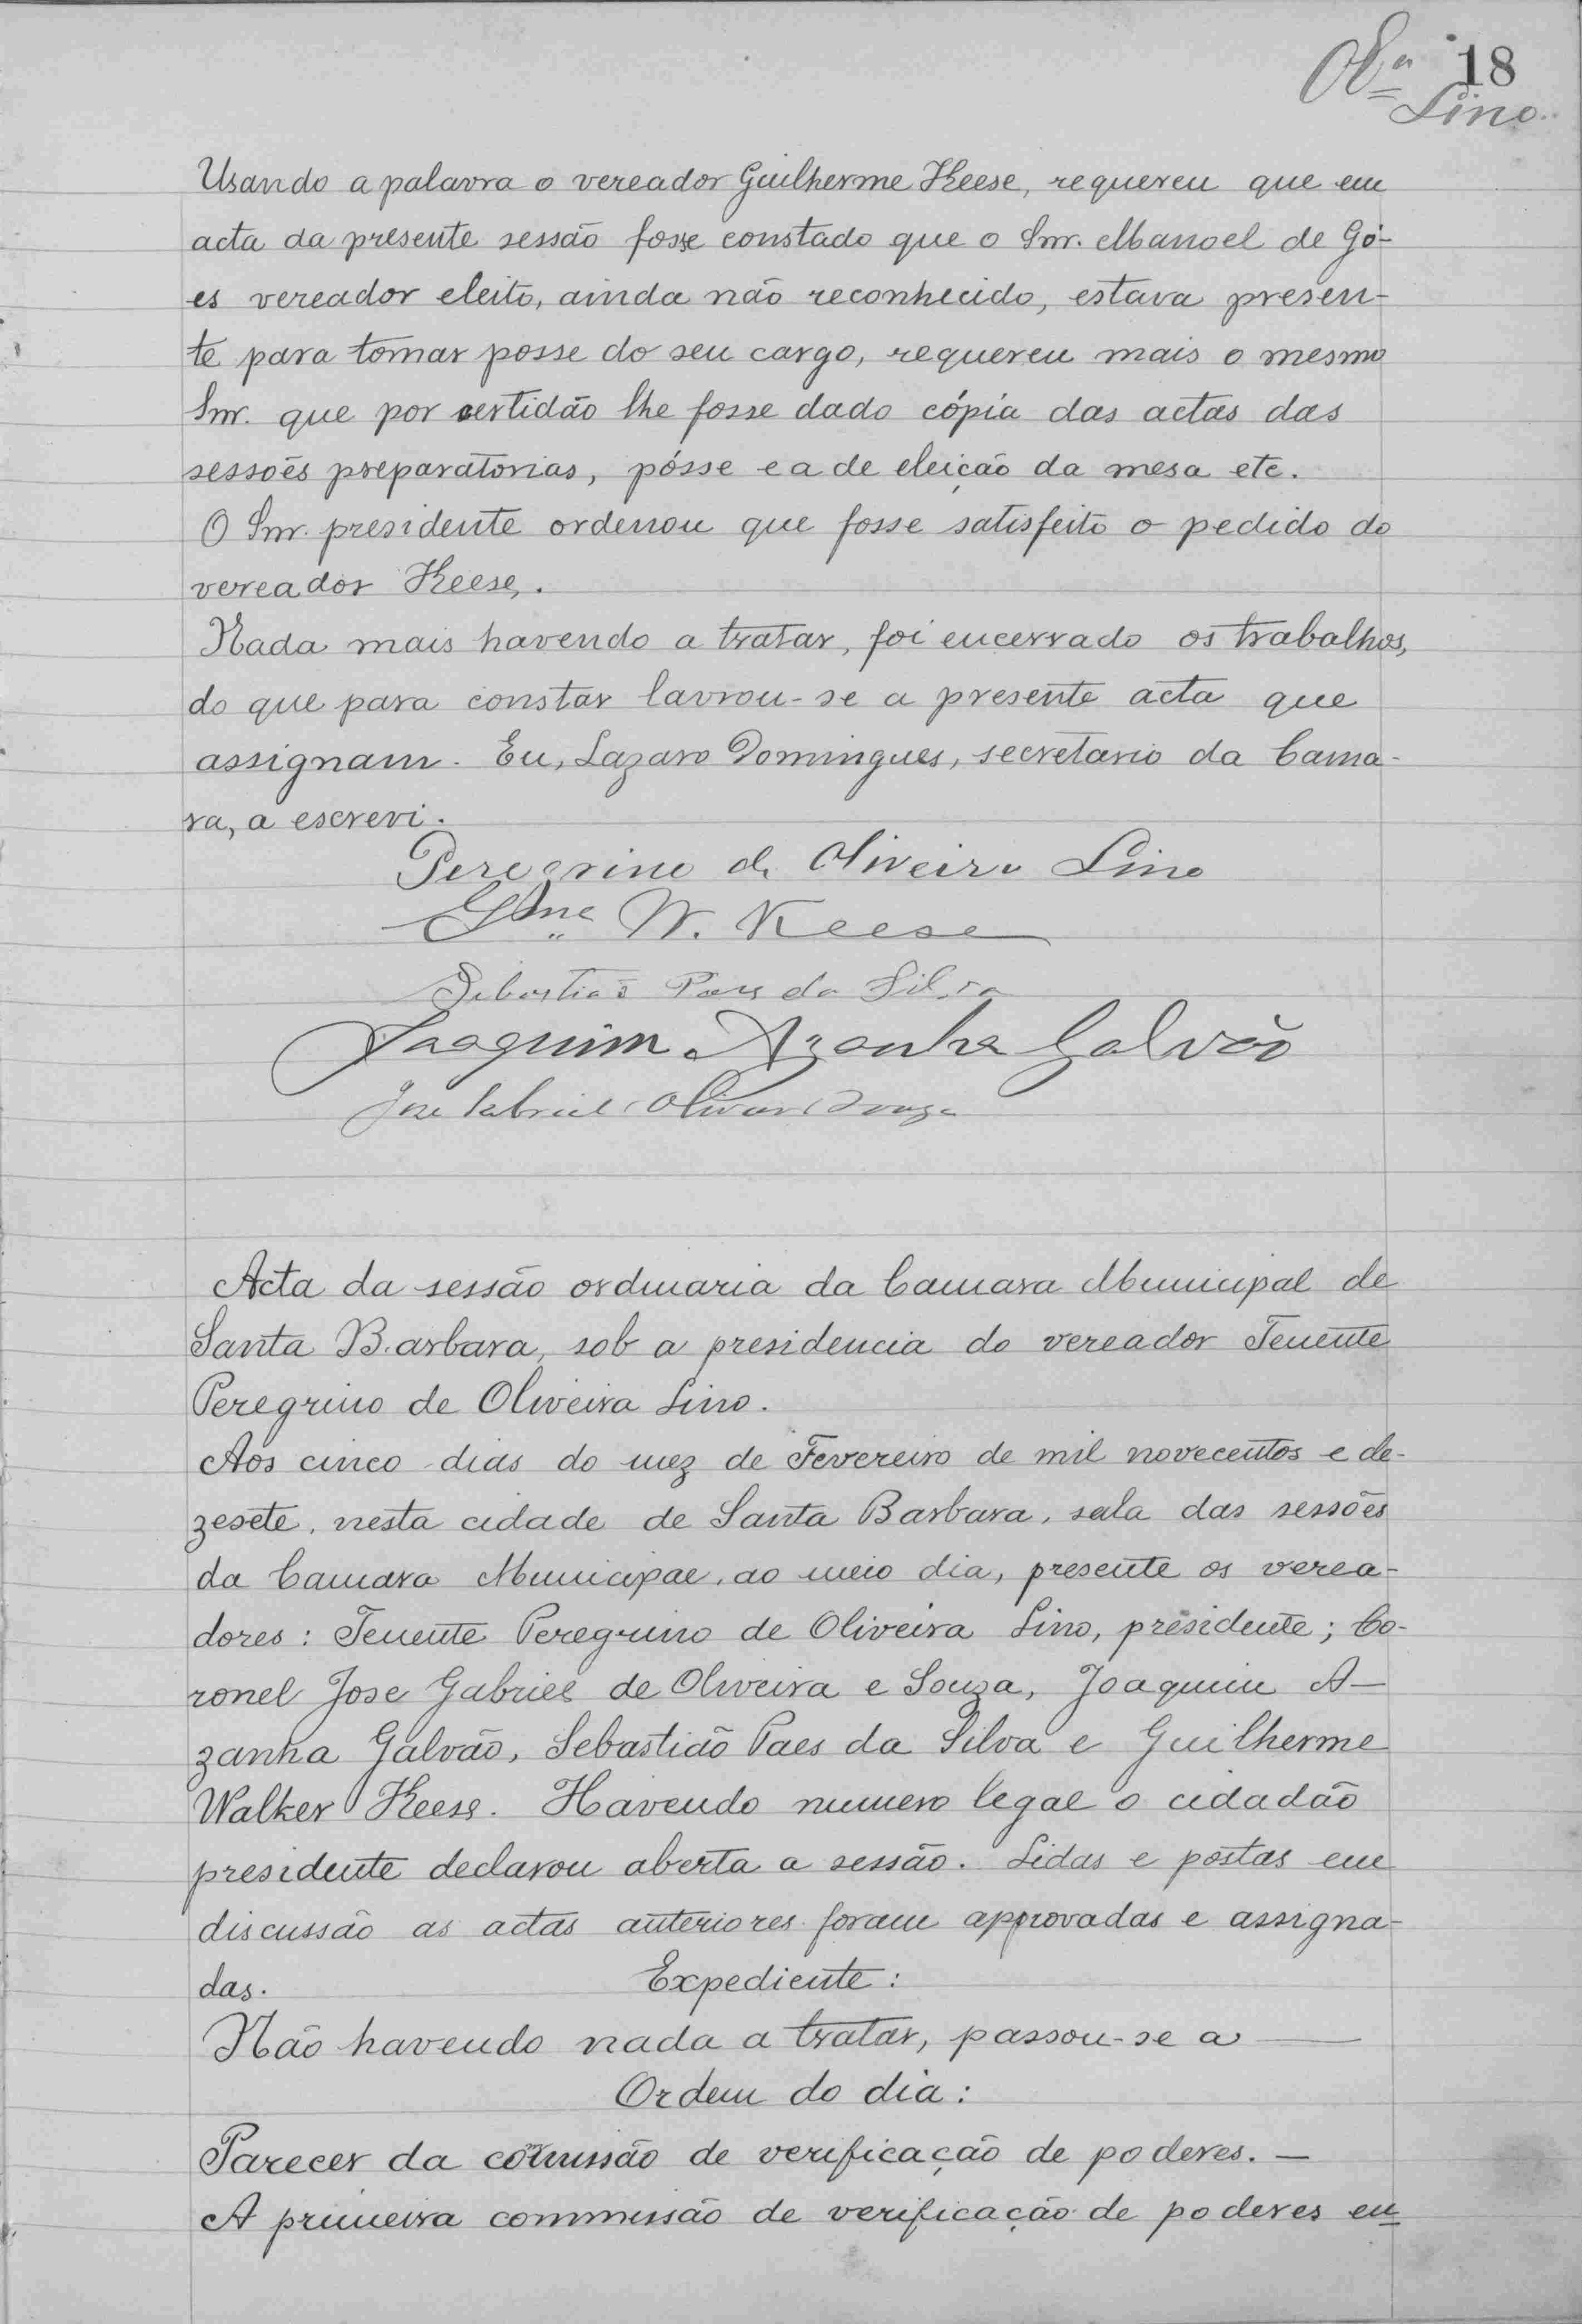 18
Lino
Usando a palavra o vereador Guilherme Keese, requereu que em
acta da presente sessão fosse constado que o Snr. Manoel de Gó-
es vereador eleito, ainda não reconhecido, estava presen-
te para tomar posse do seu cargo, requereu mais o mesmo
Snr. que por certidão lhe fosse dado cópia das actas das
sessões preparatorias, pósse e a de eleição da mesa etc.
O Snr. presidente ordenou que fosse satisfeito o pedido do
vereador Keese,.
Nada mais havendo a tratar, foi encerrado os trabalhos,
do que para constar lavrou-se a presente acta que
assignam. Eu, Lazaro Domingues, secretario da Cama-
ra, a escrevi.
Peregrino de Oliveira Lino
Glme W. Keese
Sebastião Paes da Silva
Joaquim Azanha Galvão
Jose Gabriel Oliveira Souza
Acta da sessão ordinaria da Camara Municipal de
Santa Barbara, sob a presidencia do vereador Tenente
Peregrino de Oliveira Lino.
Aos cinco dias do mez de Fevereiro de mil novecentos e de-
zesete, nesta cidade de Santa Barbara, sala das sessões
da Camara Municipal, ao meio dia, presente os verea-
dores: Tenente Peregrino de Oliveira Lino, presidente; Co-
ronel Jose Gabriel de Oliveira e Souza, Joaquim A-
zanha Galvão, Sebastião Paes da Silva e Guilherme
Walker Keese. Havendo numero legal o cidadão
presidente declarou aberta a sessão. Lidas e postas em
discussão as actas anteriores foram approvadas e assigna-
das. Expediente:
Não havendo nada a tratar, passou-se a —
Ordem do dia:
Parecer da comissão de verificação de poderes. —
A primeira commissão de verificação de poderes en